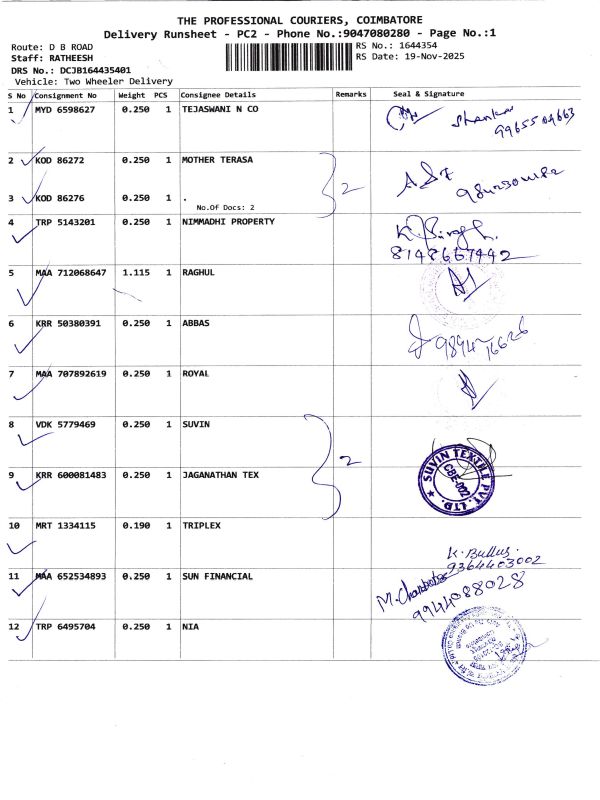 THE PROFESSIONAL COURIERS, COIMBATORE
Delivery Runsheet - PC2 - Phone No.:9047080280 - Page No.:1
Route: D B ROAD
Staff: RATHEESH
DRS No.: DCJB164435401
Vehicle: Two Wheeler Delivery
RS No.: 1644354
RS Date: 19-Nov-2025
S No Consignment No Weight PCS Consignee Details Remarks Seal & Signature
1 MYD 6598627 0.250 1 TEJASWANI N CO
Shankar
2 KOD 86272 0.250 1 MOTHER TERASA
2
3 KOD 86276 0.250 1 .
No.Of Docs: 2
4 TRP 5143201 0.250 1 NIMMADHI PROPERTY
K Singh.
8148667442
5 MAA 712068647 1.115 1 RAGHUL
6 KRR 50380391 0.250 1 ABBAS
7 MAA 707892619 0.250 1 ROYAL
8 VDK 5779469 0.250 1 SUVIN
2
SUVIN TEXTILE PVT. LTD.
CBE-002
9 KRR 600081483 0.250 1 JAGANATHAN TEX
10 MRT 1334115 0.190 1 TRIPLEX
9364403002
11 MAA 652534893 0.250 1 SUN FINANCIAL
9944088028
12 TRP 6495704 0.250 1 NIA